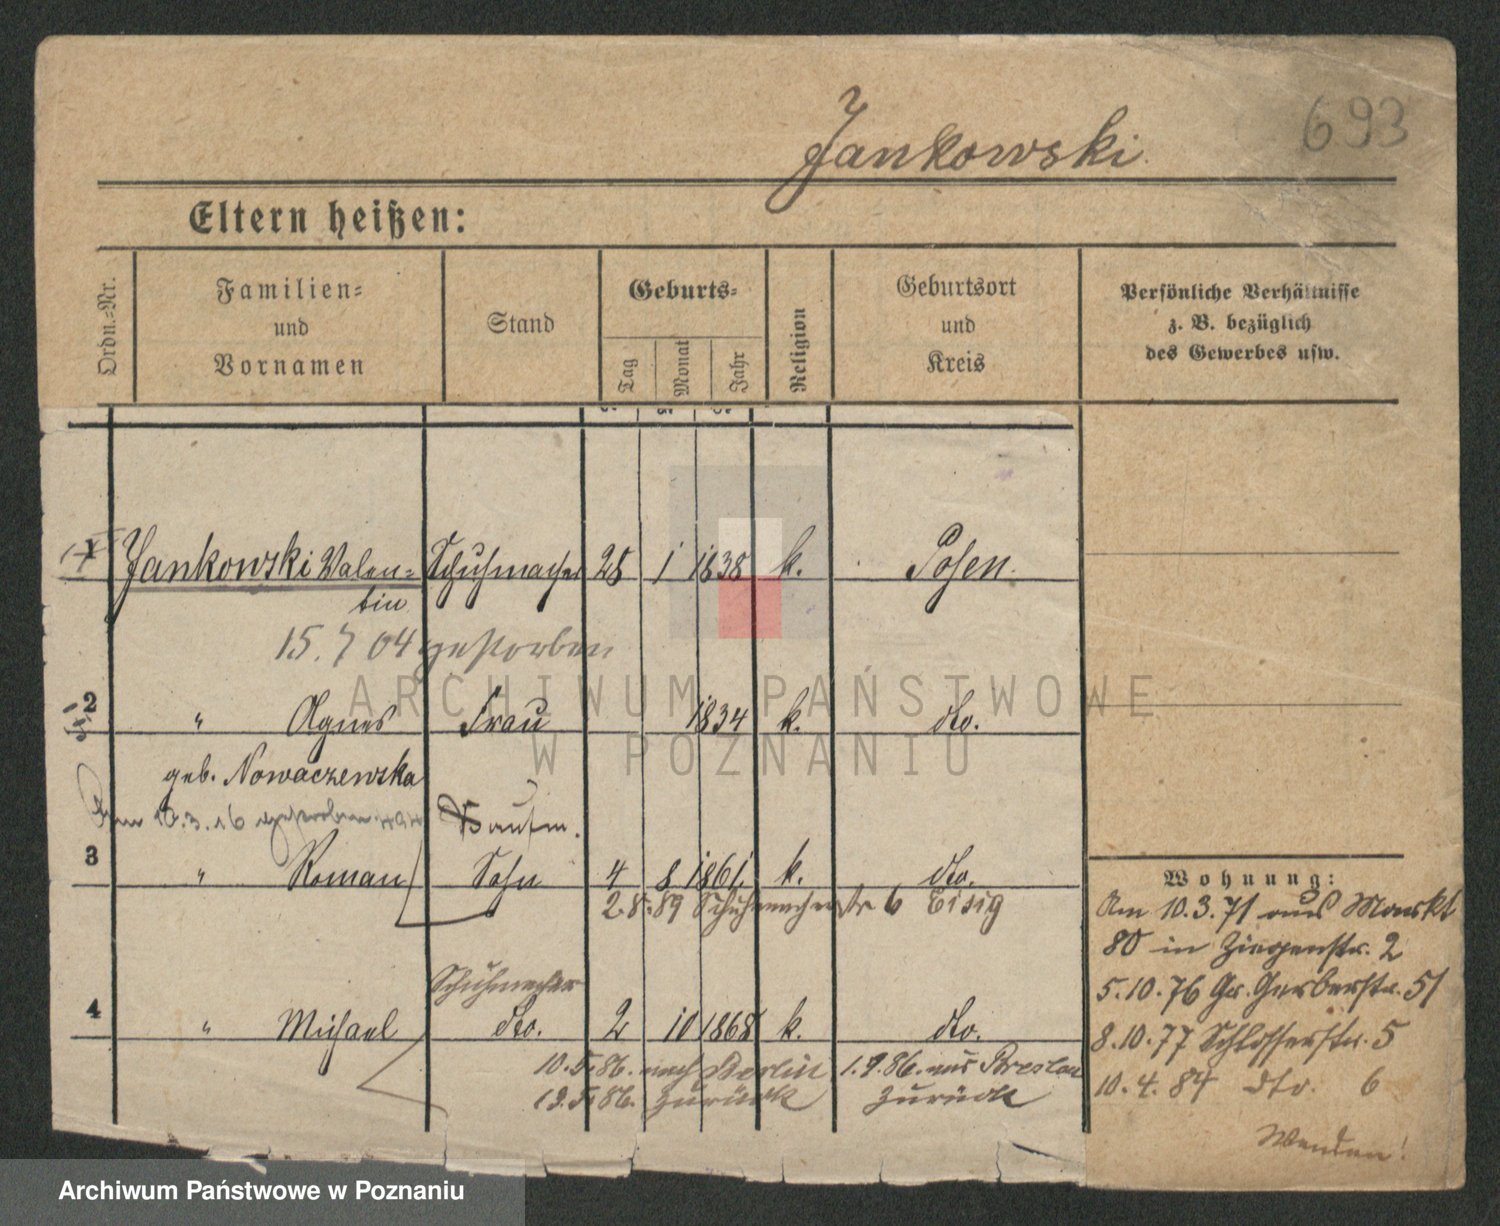 693
Jankowski
Eltern heißen:
Ordn.-Nr.
Familien-
und
Vornamen
Stand
Geburts-
Tag
Monat
Jahr
Religion
Geburtsort
und
Kreis
Persönliche Verhältnisse
z. B. bezüglich
des Gewerbes usw.
1 Jankowski Valen- Schuhmacher 28 1 1838 k. Posen
tin
15.7 04 gestorben
2 " Agnes Frau 1834 k. dto.
geb. Nowaczewska
10.3.16 gestorben
Kaufm.
3 " Roman Sohn 4 8 1861 k. dto.
2.8.89 Schuhmacherstr 6 Eisig
Schuhmacher
4 " Michael dto. 2 10 1868 k. dto.
10.5.86. nach Berlin 1.9.86. aus Breslau
19.5.86. zurück zurück
Wohnung:
Am 10.3.71 aus Markt
80 in Ziegenstr. 2
5.10.76 Gr. Gerberstr. 51
8.10.77 Schlosserstr. 5
10.4.84 dto. 6
Wenden!
ARCHIWUM PAŃSTWOWE
W POZNANIU
Archiwum Państwowe w Poznaniu